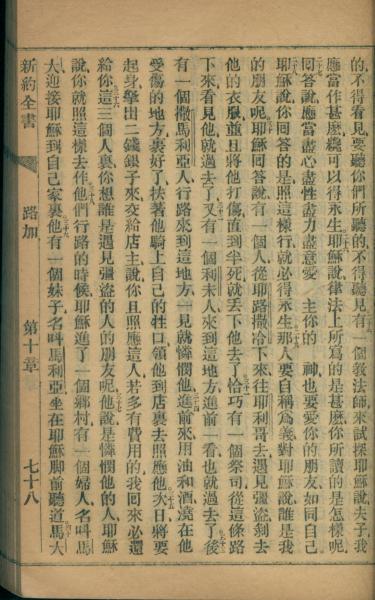 的不得看見要聽你們所聽的不得聽見有一個教法師來試探耶穌說夫子我
應當作甚麼纔可以得永生耶穌說律法上所寫的是甚麼你所讀的是怎樣呢
回答說應當盡心盡性盡力盡意愛 主你的 神也要愛你的朋友如同自己
耶穌說你回答的是照這樣行就必得永生那人要自稱爲義對耶穌說誰是我
的朋友呢耶穌回答說有一個人從耶路撒冷下來往耶利哥去遇見彊盜剝去
他的衣服並且將他打傷直到半死就丟下他去了恰巧有一個祭司從這條路
下來看見他就過去了又有一個利未人來到這地方進前一看也就過去了後
有一個撒馬利亞人行路來到這地方一見就憐憫他進前來用油和酒澆在他
受傷的地方裹好了扶著他騎上自己的牲口領他到店裏去照應他次日將要
起身拏出二錢銀子來交給店主說你且照應這人若多有費用的我回來必還
給你這三個人裏你想誰是遇見彊盜的人的朋友呢他說是憐憫他的人耶穌
說你就照這樣去作他們行路的時候耶穌進了一個鄉村有一個婦人名叫馬
大迎接耶穌到自己家裏他有一個妹子名叫馬利亞坐在耶穌脚前聽道馬大
新約全書 路加 第十章 七十八